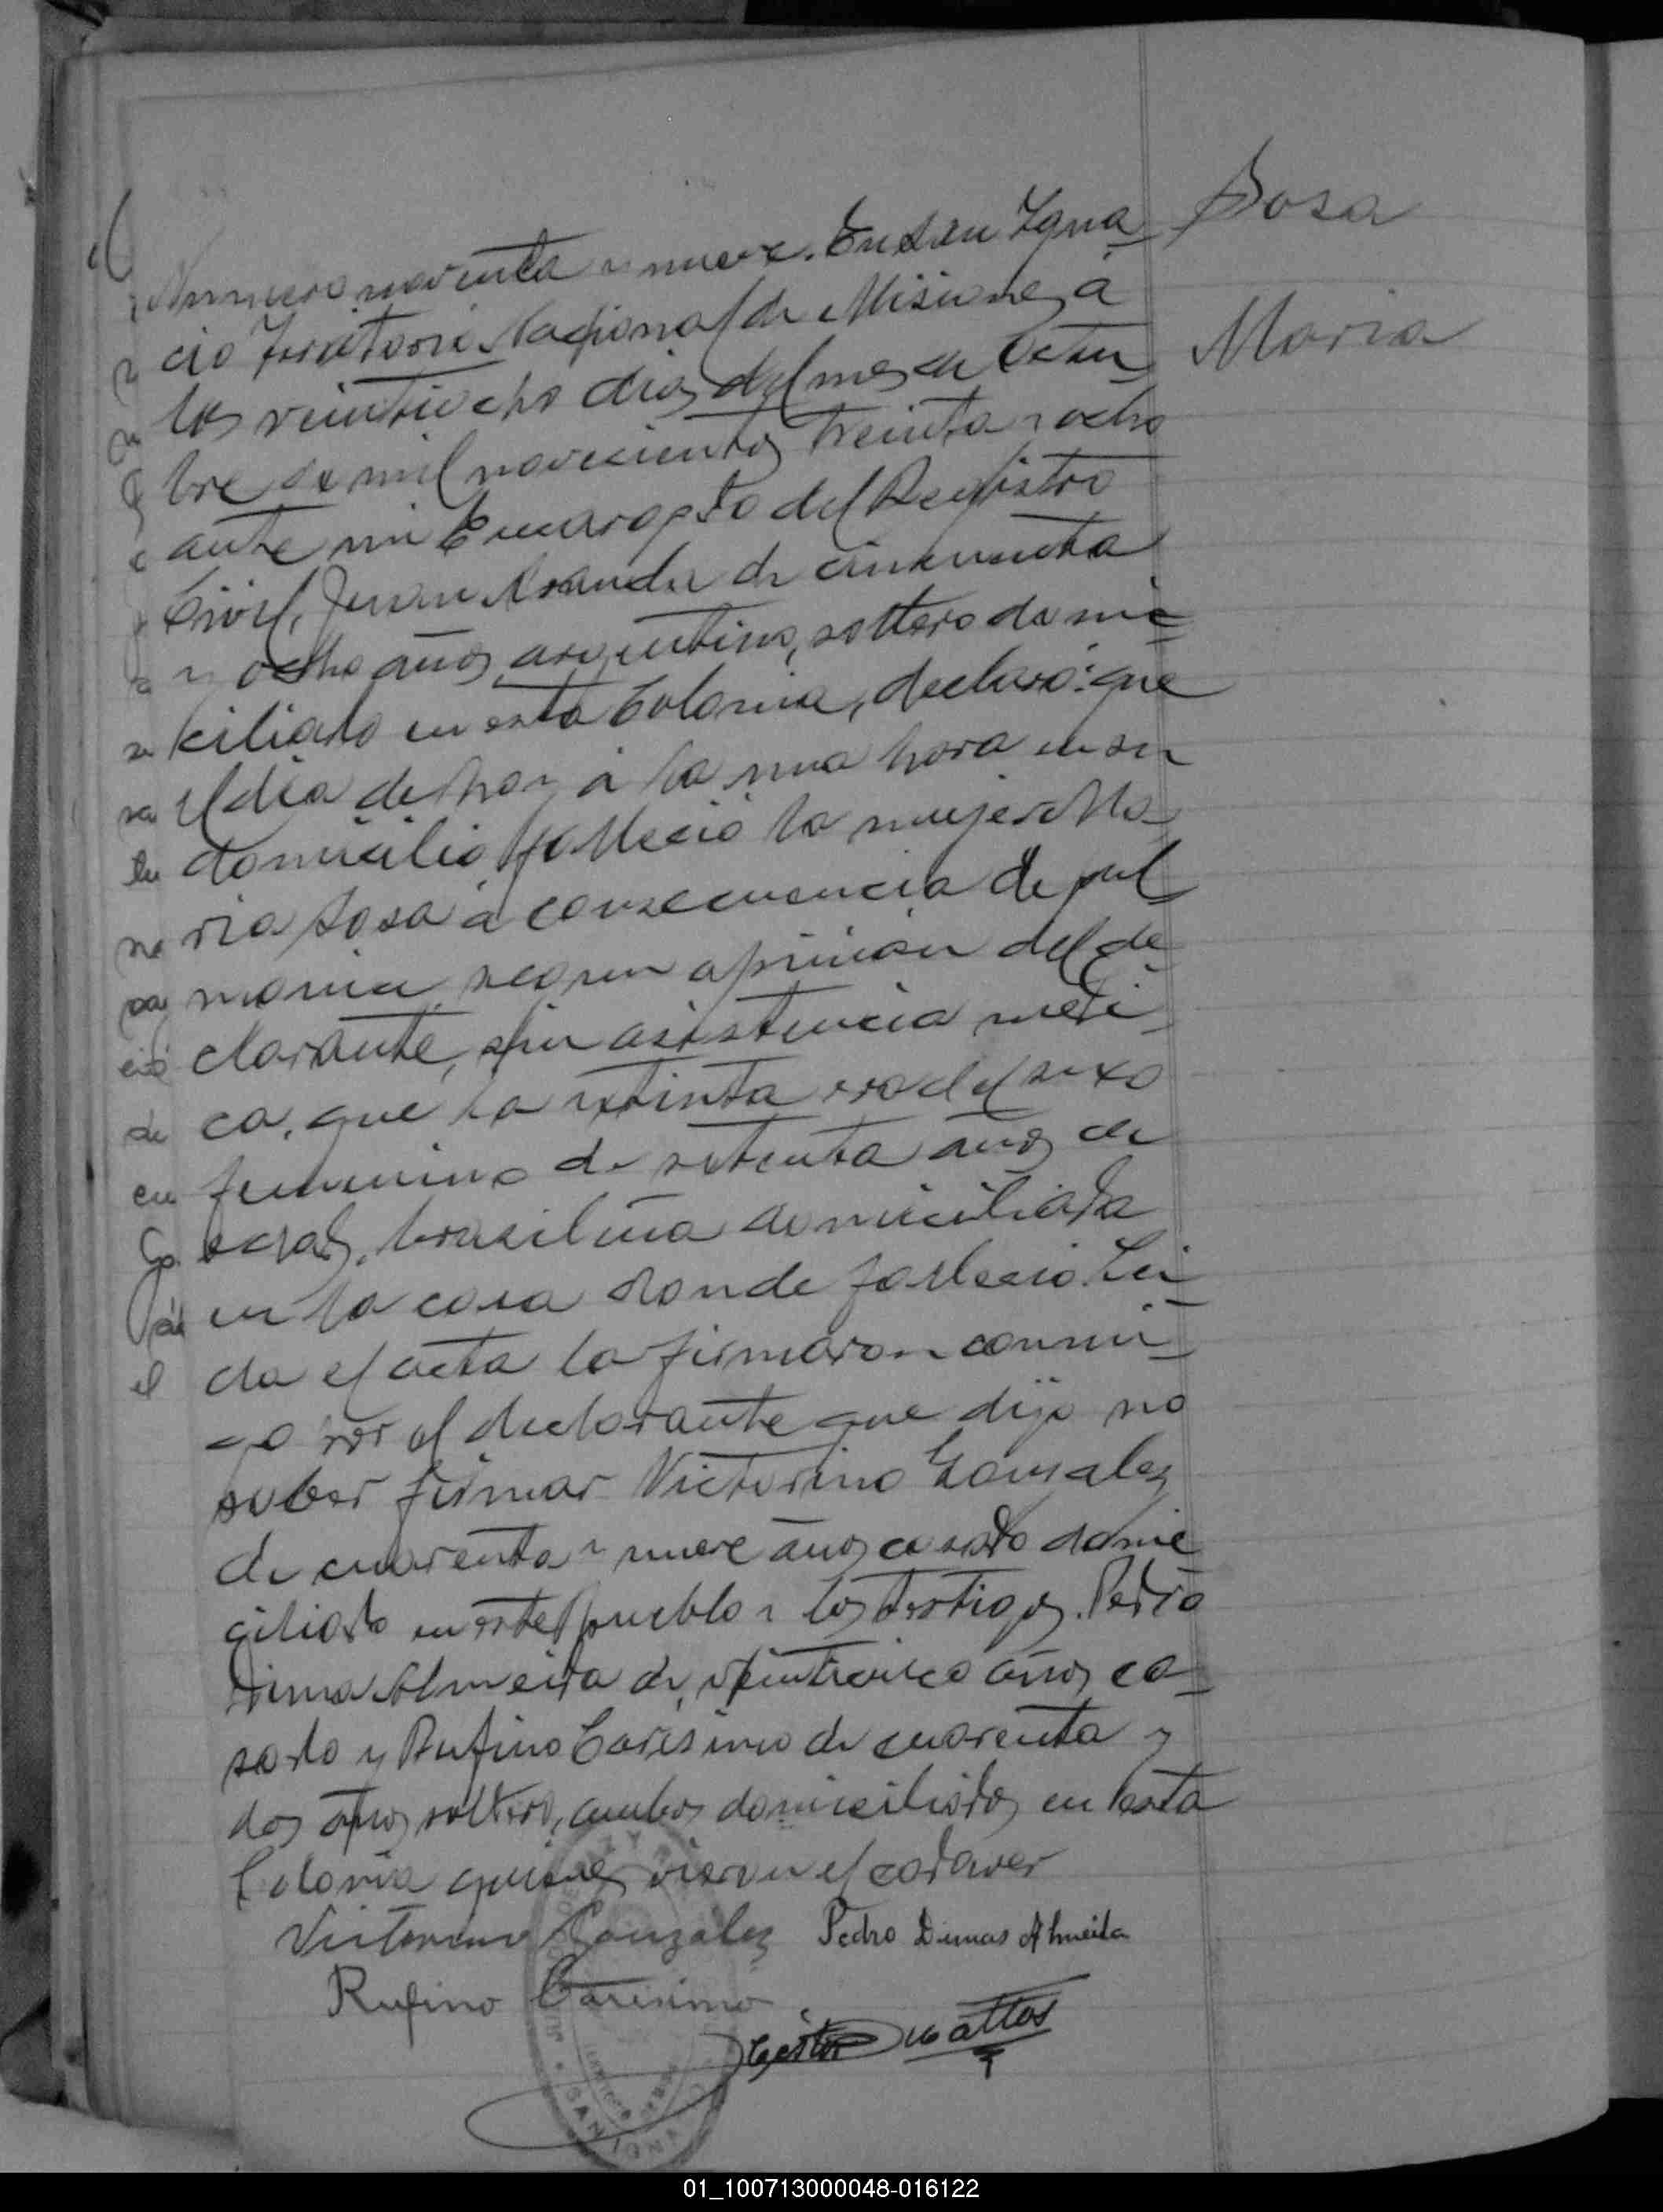 Sosa
Maria
Numero noventa y nueve. En San Igna-
cio Territorio Nacional de Misiones, a
los veintiocho dias del mes de Octu-
bre de mil novecientos treinta y ocho
ante mi Encargado del Registro
Civil, Juan Aranda de cincuenta
y ocho años, argentino, soltero domi-
ciliado en esta Colonia, declaró: que
el dia de hoy á la una hora en su
domicilio falleció la mujer Ma-
ria Sosa á consecuencia de pul
monia segun opinion del de-
clarante, sin asistencia medi-
ca, que la extinta era del sexo
femenino de setenta años de
edad, brasileña domiciliada
en la casa donde fallecio. Lei-
da el acta la firmaron conmi-
go por el declarante que dijo no
saber firmar Victorino Gonzalez
de cuarenta y nueve años casado domi-
ciliado en este pueblo y los testigos Pedro
Dima Almeida de veinticinco años, ca-
sado y Rufino Caresimo de cuarenta y
dos años soltero, ambos domiciliados en esta
Colonia quienes vieron el cadaver
Victorino Gonzalez Pedro Dimas Almeida
Rufino Caresimo
Mattos
SAN IGNA
01_100713000048-016122